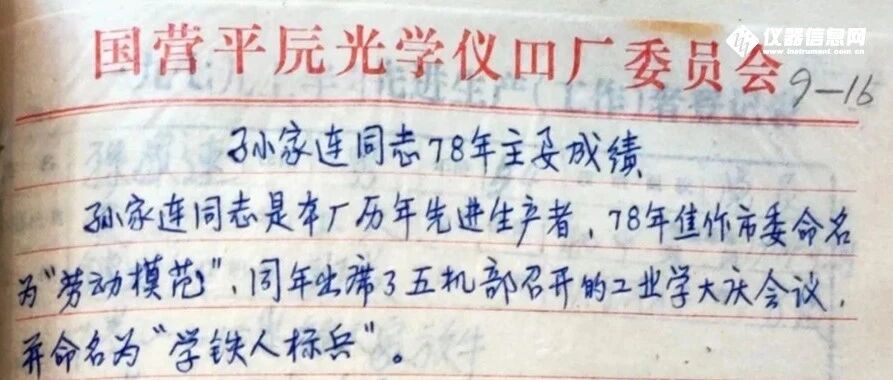 仪器信息网
www.instrument.com.cn
国营平原光学仪器厂委员会
9—16
孙家连同志78年主要成绩
孙家连同志是本厂历年先进生产者，78年焦作市委命名
为“劳动模范”，同年出席了五机部召开的工业学大庆会议，
并命名为“学铁人标兵”。